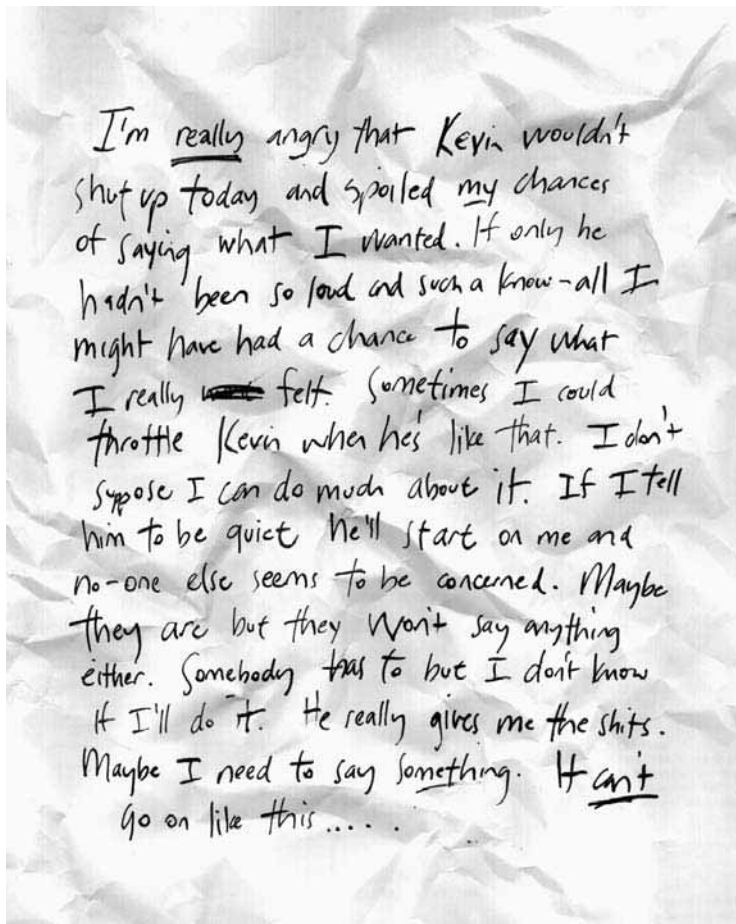 I'm really angry that Kevin wouldn't
shut up today and spoiled my chances
of saying what I wanted. If only he
hadn't been so loud and such a know-all I
might have had a chance to say what
I really felt. Sometimes I could
throttle Kevin when he's like that. I don't
suppose I can do much about it. If I tell
him to be quiet he'll start on me and
no-one else seems to be concerned. Maybe
they are but they won't say anything
either. Somebody has to but I don't know
if I'll do it. He really gives me the shits.
Maybe I need to say something. It can't
go on like this.....